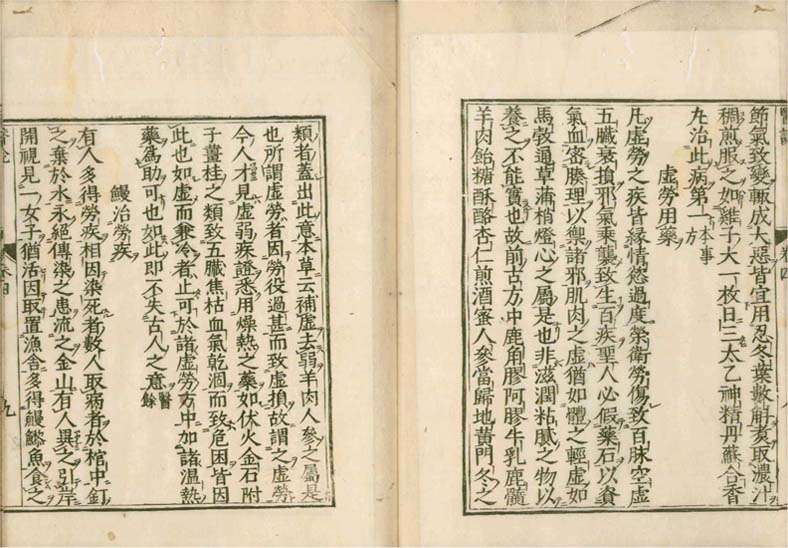 節氣致變輒成大惡皆宜用忍冬葉數斛煮取濃汁
稠煎服之如雞子大一枚日三太乙神精丹蘇合香
九治此病第一方本事
虛勞用藥
凡虛勞之疾皆緣情慾過度榮衛勞傷致百脉空虛
五臟衰損邪氣乗襲致生百疾聖人必假藥石以資
氣血密腠理以禦諸邪肌肉之虛猶如體之輕虛如
馬㪍通草蒲梢燈心之屬是也非滋潤粘膩之物以
養之不能實也故前古方中鹿角膠阿膠牛乳鹿髓
羊肉飴糖酥酪杏仁煎酒蜜人參當歸地黃門冬之
類者蓋出此意本草云補虛去弱羊肉人參之屬是
也所謂虛勞者因勞役過甚而致虛損故謂之虛勞
今人才見虛弱疾證悉用燥熱之藥如伏火金石附
子薑桂之類致五臟焦枯血氣乾涸而致危困皆因
此也如虛而兼冷者止可於諸虛勞方中加諸溫熱
藥爲助可也如此即不失古人之意醫餘
鰻治勞疾
有人多得勞疾相因染死者數人取病者於棺中釘
之棄於水永絕傳染之患流之金山有人異之引岸
開視見一女子猶活因取置漁舍多得鰻鱺魚食之
卷四
九